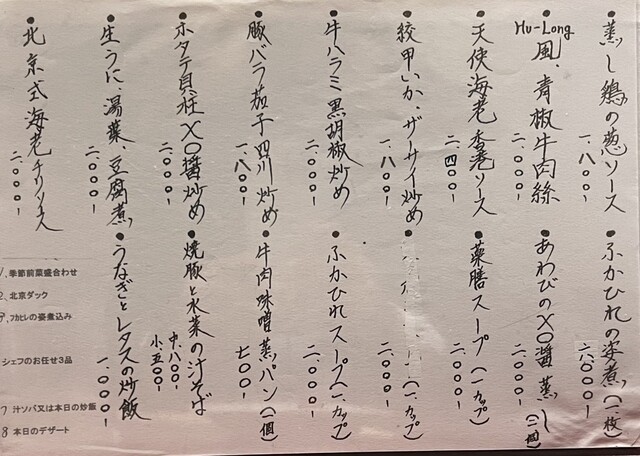 ●蒸し鶏の葱ソース 一、八〇〇-
●Hu-Long風、青椒牛肉絲 二、〇〇〇-
●天使海老 香港ソース 二、四〇〇-
●紋甲いか、ザーサイ炒め 一、八〇〇-
●牛ハラミ黒胡椒炒め 二、〇〇〇-
●豚バラ茄子四川炒め 一、八〇〇-
●ホタテ貝柱XO醤炒め 二、〇〇〇-
●生うに、湯葉、豆腐煮 二、〇〇〇-
●北京式海老チリソース 二、〇〇〇-
●ふかひれの姿煮(一枚) 六〇〇〇-
●あわびのXO醤蒸し(三個) 二、〇〇〇-
●薬膳スープ(一カップ) 二、〇〇〇-
●(一カップ) 二、〇〇〇-
●ふかひれスープ(一カップ) 二、〇〇〇-
●牛肉味噌蒸パン(一個) 七〇〇-
●焼豚と水菜の汁そば 中、八〇〇- 小、五〇〇-
●うなぎとレタスの炒飯 一、〇〇〇-
季節前菜盛合わせ
北京ダック
フカヒレの姿煮込み
シェフのお任せ3品
7 汁ソバ又は本日の炒飯
8 本日のデザート